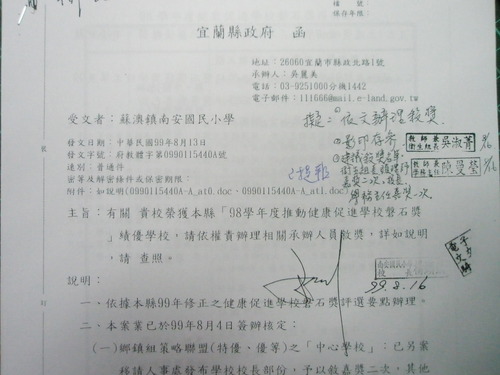 檔　號：
保存年限：
宜蘭縣政府　函
地址：26060宜蘭市縣政北路1號
承辦人：吳麗美
電話：03-9251000分機1442
電子郵件：111666@mail.e-land.gov.tw
受文者：蘇澳鎮南安國民小學
擬：一依文辦理敘獎
發文日期：中華民國99年8月13日
發文字號：府教體字第0990115440A號
速別：普通件
密等及解密條件或保密期限：
附件：如說明(0990115440A-A_at0.doc、0990115440A-A_at1.doc)
影印存查
吳淑菁
陳旻瑩
嘉獎二次
嘉獎一次
主旨：有關 貴校榮獲本縣「98學年度推動健康促進學校磐石獎
」績優學校，請依權責辦理相關承辦人員敘獎，詳如說明
，請 查照。
說明：
99.8.16
一、依據本縣99年修正之健康促進學校磐石獎評選要點辦理。
二、本案業已於99年8月4日簽辦核定：
(一)鄉鎮組策略聯盟(特優、優等)之「中心學校」：已另案
移請人事處發布學校校長部份，予以敘嘉獎二次，其他